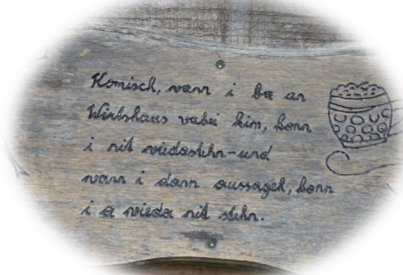 Komisch, wann i ba an
Wirtshaus vabei kim, konn
i nit wiedastehn-und
wann i dann aussageh, konn
i a wieda nit stehn.